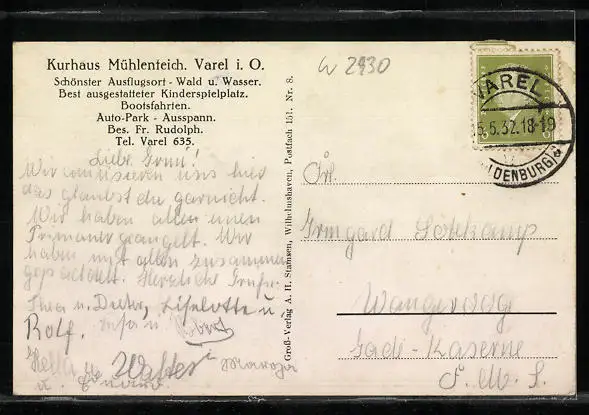 Kurhaus Mühlenteich. Varel i. O.
Schönster Ausflugsort - Wald u. Wasser.
Best ausgestatteter Kinderspielplatz.
Bootsfahrten.
Auto-Park - Ausspann.
Bes. Fr. Rudolph.
Tel. Varel 635.
Wir amüsieren uns hier
das glaubst du garnicht.
Wir haben allen einen
Primaner geangelt. Wir
haben mit allen zusammen
Herzliche Grüße
Thea u. Liselotte u.
Rolf. u. Robert
Hella u. Walter
u.
Groß-Verlag A. H. Stamsen, Wilhelmshaven, Postfach 151. Nr. 8.
W 2930
VAREL
5.5.32.18-19
OLDENBURG
Irmgard
Wangeroog
Kaserne